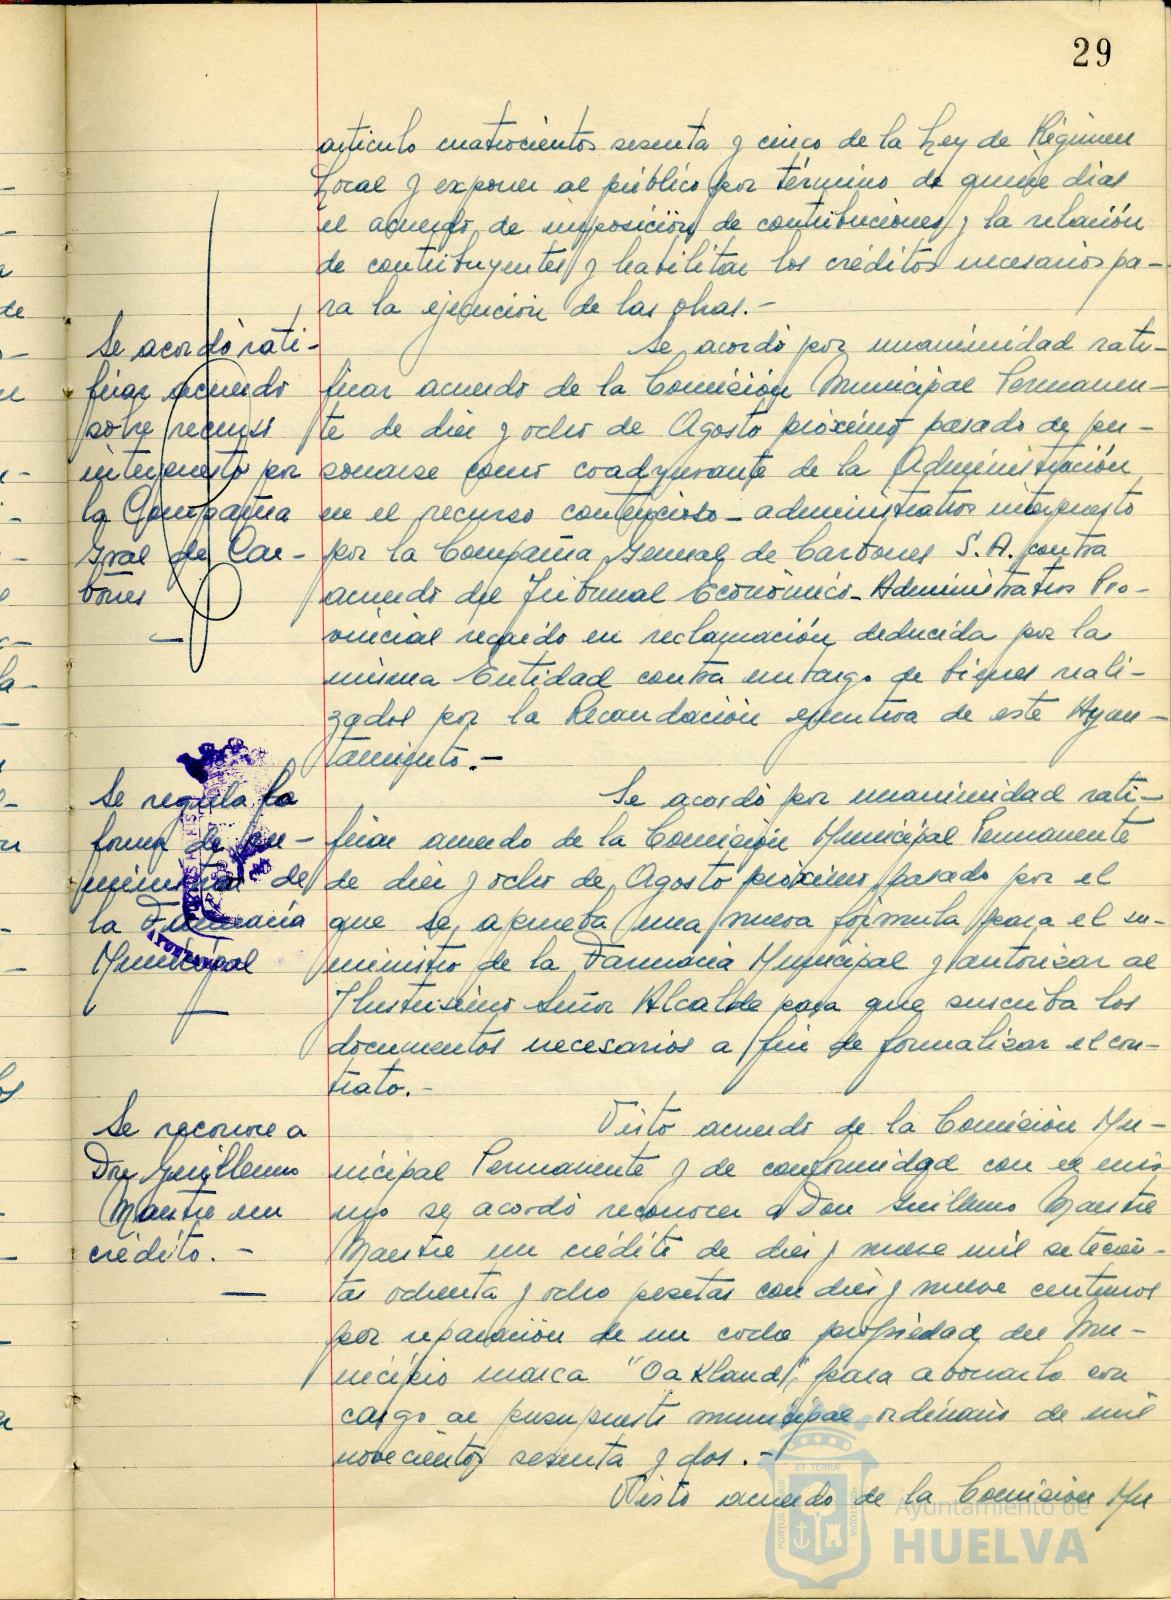 29
articulo cuatrocientos sesenta y cinco de la Ley de Régimen
Local y exponer al público por término de quince dias
el acuerdo de imposición de contribuciones y la relación
de contribuyentes y habilitar los créditos necesarios pa-
ra la ejecución de las obras.-
Se acordó rati-
ficar acuerdo
sobre recurso
interpuesto por
la Compañia
Gral de Car-
bones
Se acordó por unanimidad rati-
ficar acuerdo de la Comisión Municipal Permanen-
te de diez y ocho de Agosto próximo pasado de per-
sonarse como coadyuvante de la Administración
en el recurso contencioso-administrativo interpuesto
por la Compañia General de Carbones S.A. contra
acuerdo del Tribunal Económico-Administrativo Pro-
vincial recaido en reclamación deducida por la
misma Entidad contra embargo de bienes reali-
zados por la Recaudación ejecutiva de este Ayun-
tamiento.-
Se regula la
forma de su-
ministrar de
la Farmacia
Municipal
Se acordó por unanimidad rati-
ficar acuerdo de la Comisión Municipal Permanente
de diez y ocho de Agosto próximo pasado por el
que se aprueba una nueva fórmula para el su-
ministro de la Farmacia Municipal y autorizar al
Ilustrisimo Señor Alcalde para que suscriba los
documentos necesarios a fin de formalizar el con-
trato.-
Se reconoce a
Don Guillermo
Maestre un
crédito.-
Visto acuerdo de la Comisión Mu-
nicipal Permanente y de conformidad con el mis
mo se acordó reconocer a Don Guillermo Maestre
Maestre un crédito de diez y nueve mil setecien-
tas ochenta y ocho pesetas con diez y nueve centimos
por reparación de un coche propiedad del Mu-
nicipio marca "Oakland", para abonarlo con
cargo al presupuesto municipal ordinario de mil
novecientos sesenta y dos.-
Visto acuerdo de la Comisión Mu
Ayuntamiento de
HUELVA